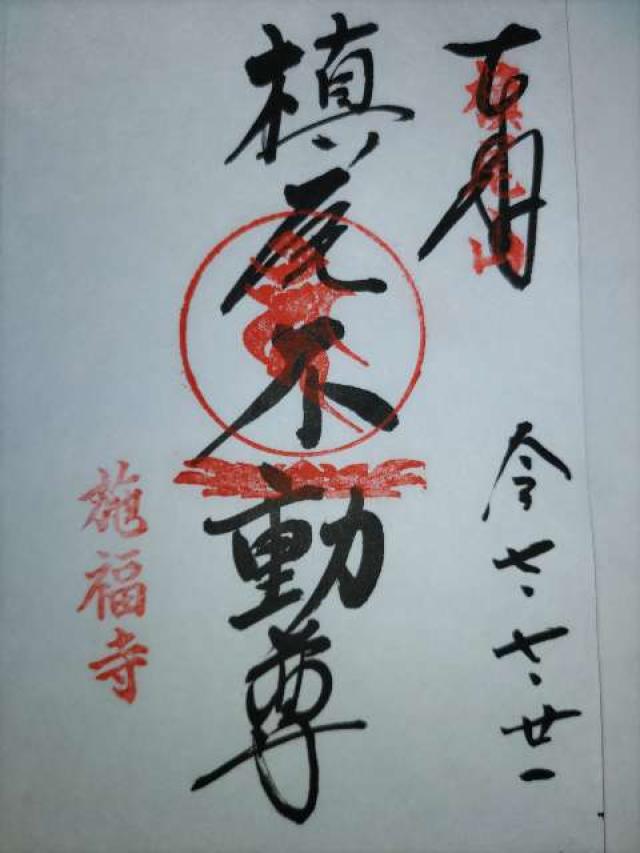 槇尾山
槙尾不動尊
令七、七、廿一
施福寺